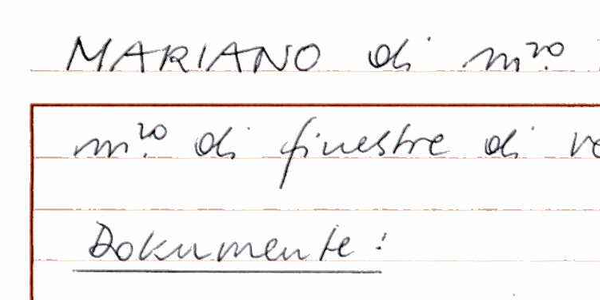 MARIANO di m.ro
m.ro di finestre di
Dokumente: